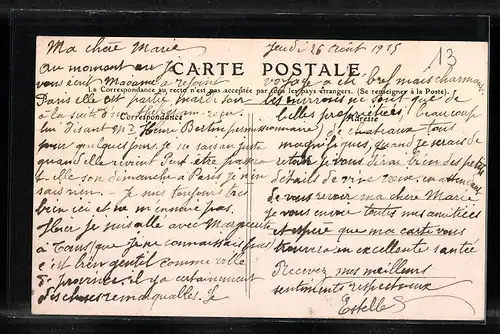 Ma chère Marie
Jeudi 26 Août 1915
13
CARTE POSTALE
La Correspondance au recto n'est pas acceptée par tous les pays étrangers. (Se renseigner à la Poste).
Correspondance
Adresse
au moment où je
vous écrit Madame a rejoint
Paris elle est partie mardi soir
à la suite d'un
lui disant Mr Henri Bertin permissionnaire
pour quelques jours je ne sais au juste
quand elle revient peut être
elle son dimanche à Paris je n'en
sais rien — je suis toujours très
bien ici et ne m'ennuie pas.
Hier je suis allé avec Marguerite
à Tours (que je ne connaissais pas)
c'est bien gentil comme ville
de province. il y a certainement
des choses remarquables. Le
voyage a été bref mais charmant
les environs ne sont que de
belles propriétées, beaucoup
de chateaux tous
magnifiques, quand je serais de
retour je vous dirai bien des petits
détails de vive voix. en attendant
de vous revoir ma chère Marie
je vous envoie toutes mes amitiées
et espère que ma carte vous
trouvera en excellente santée
Recevez mes meilleurs
sentiments respectueux
Estelle